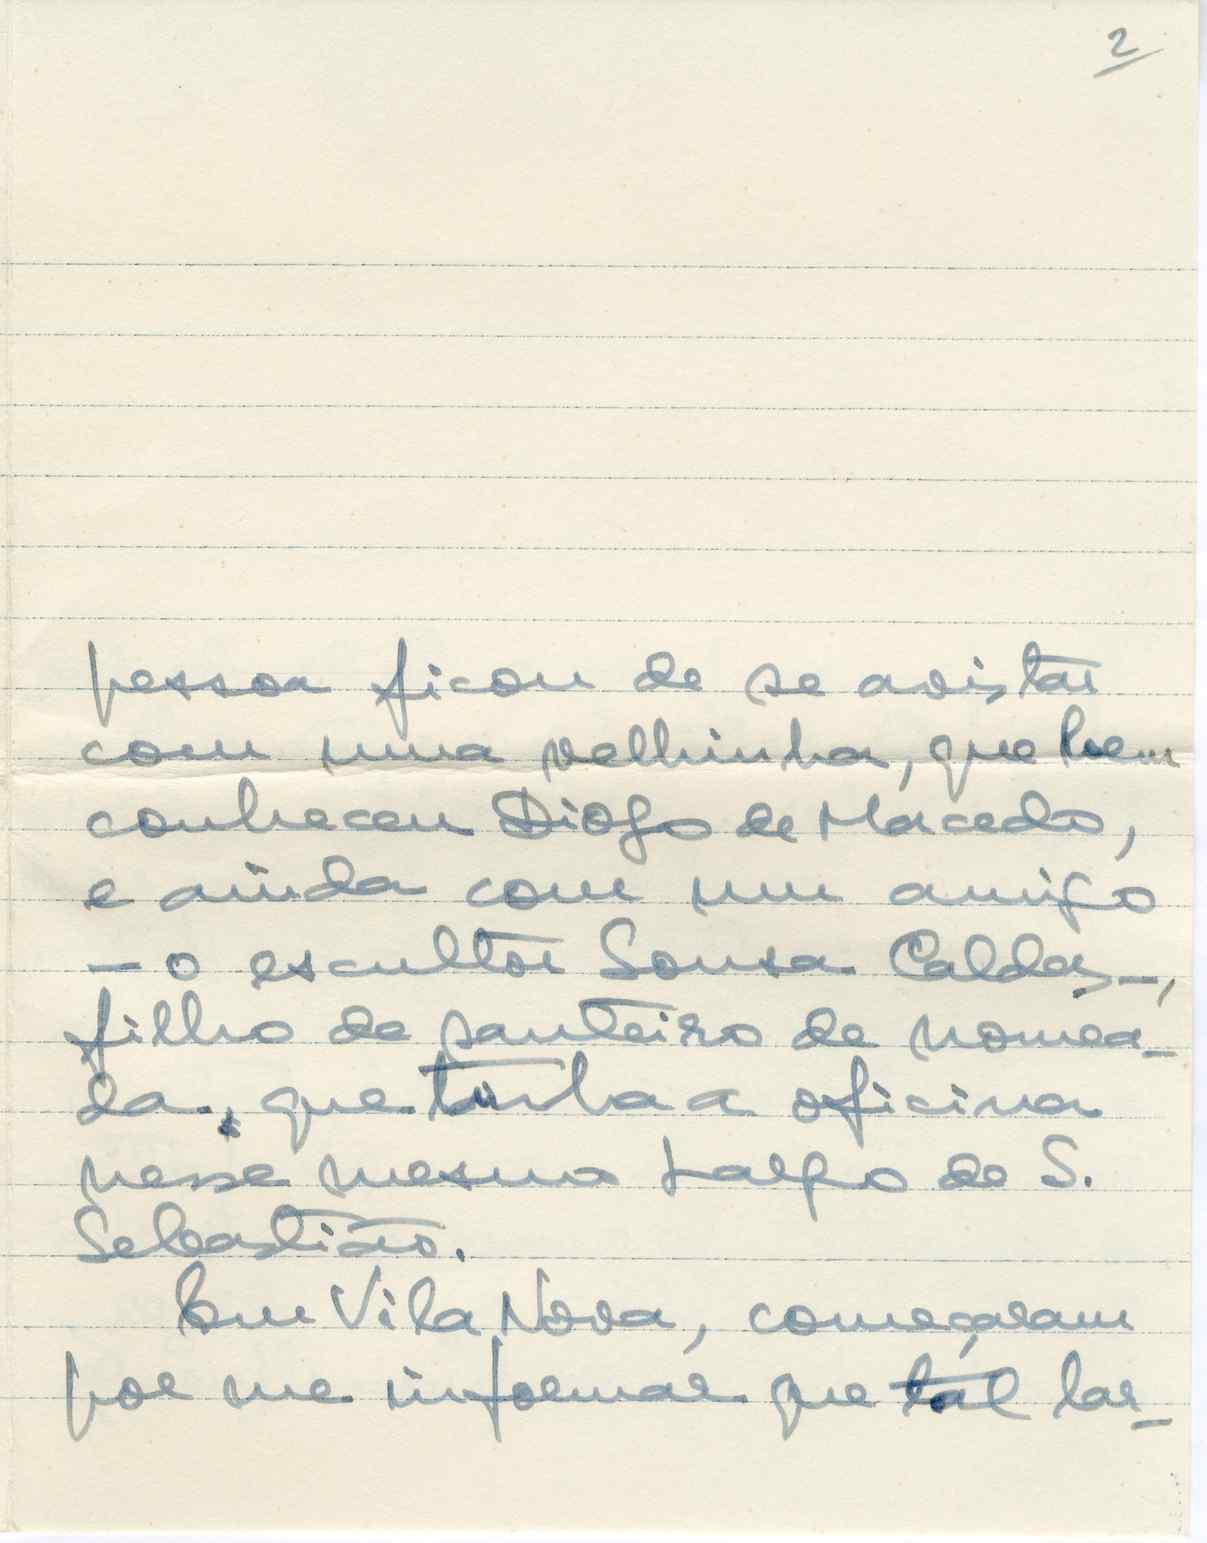 2
pessoa ficou de se avistar
com uma velhinha, que bem
conheceu Diogo de Macedo,
e ainda com um amigo
– o escultor Sousa Caldas –,
filho de santeiro de nomea-
da, que tinha a oficina
nesse mesmo Largo de S.
Sebastião.
Em Vila Nova, começaram
por me informar que tal lar-